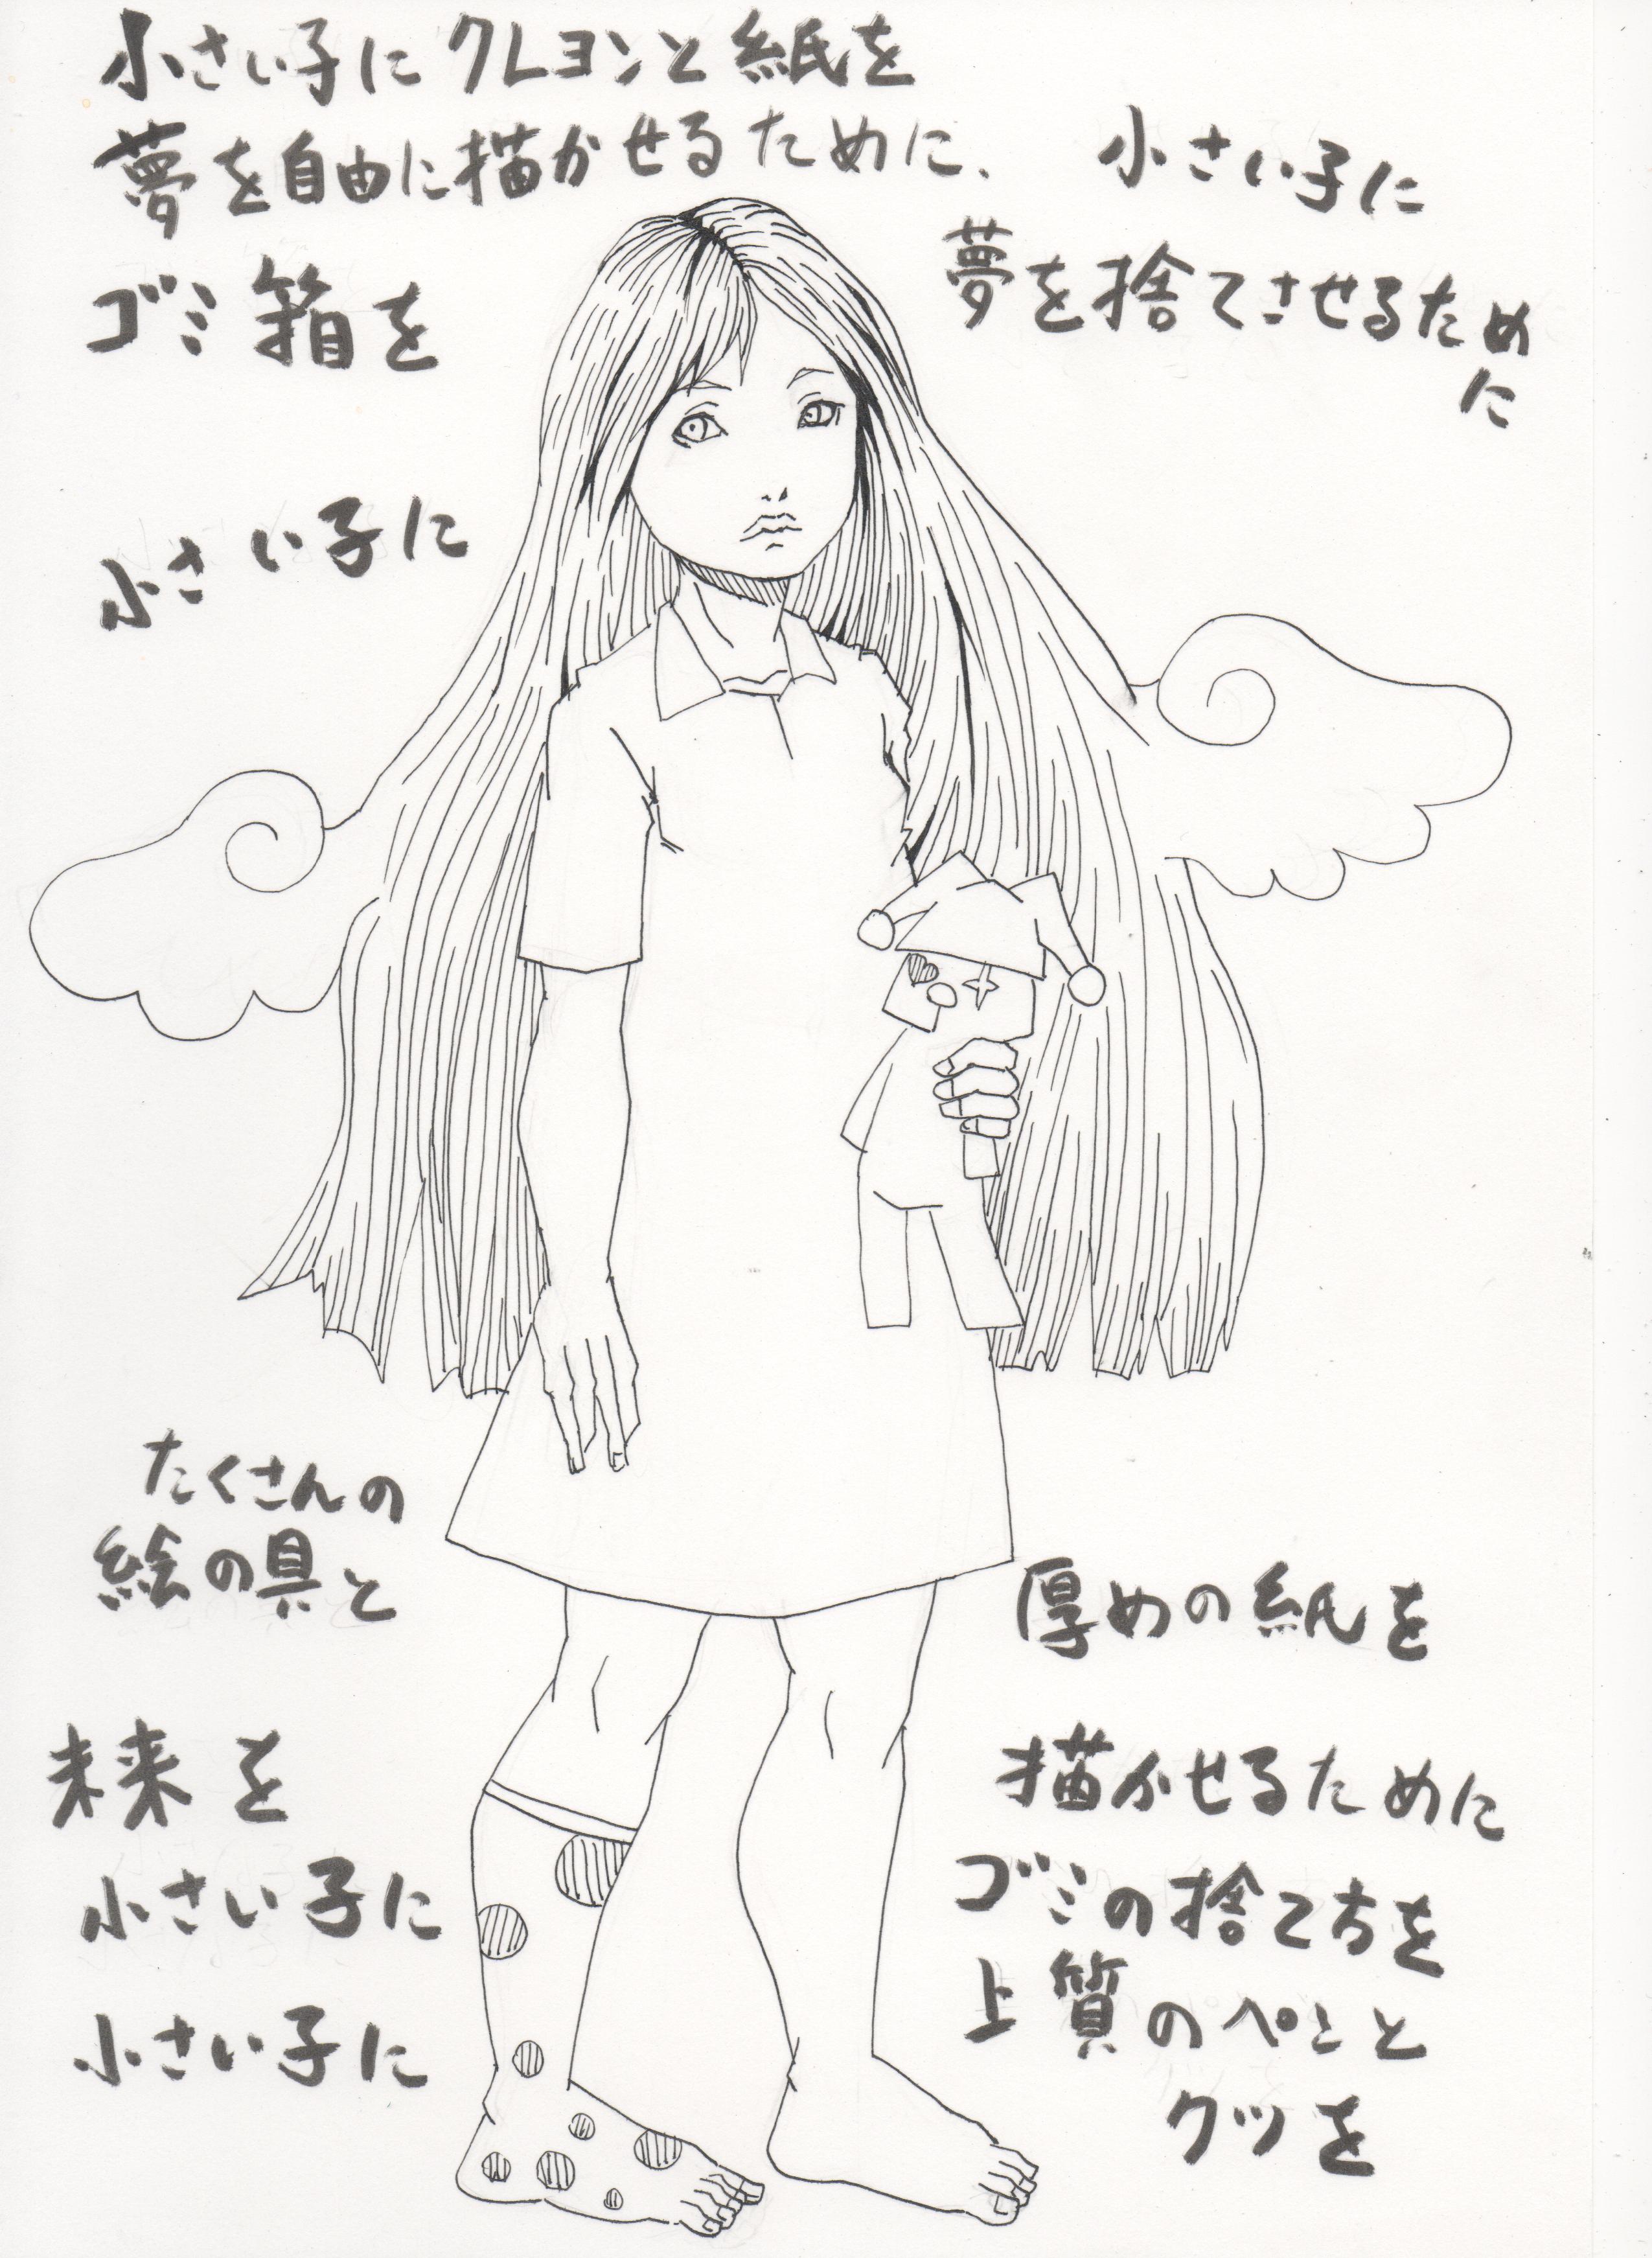 小さい子にクレヨンと紙を
夢を自由に描かせるために、
ゴミ箱を
小さい子に
夢を捨てさせるため
に
小さい子に
たくさんの
絵の具と
厚めの紙を
未来を
描かせるために
小さい子に
ゴミの捨て方を
小さい子に
上質のペンと
クツを